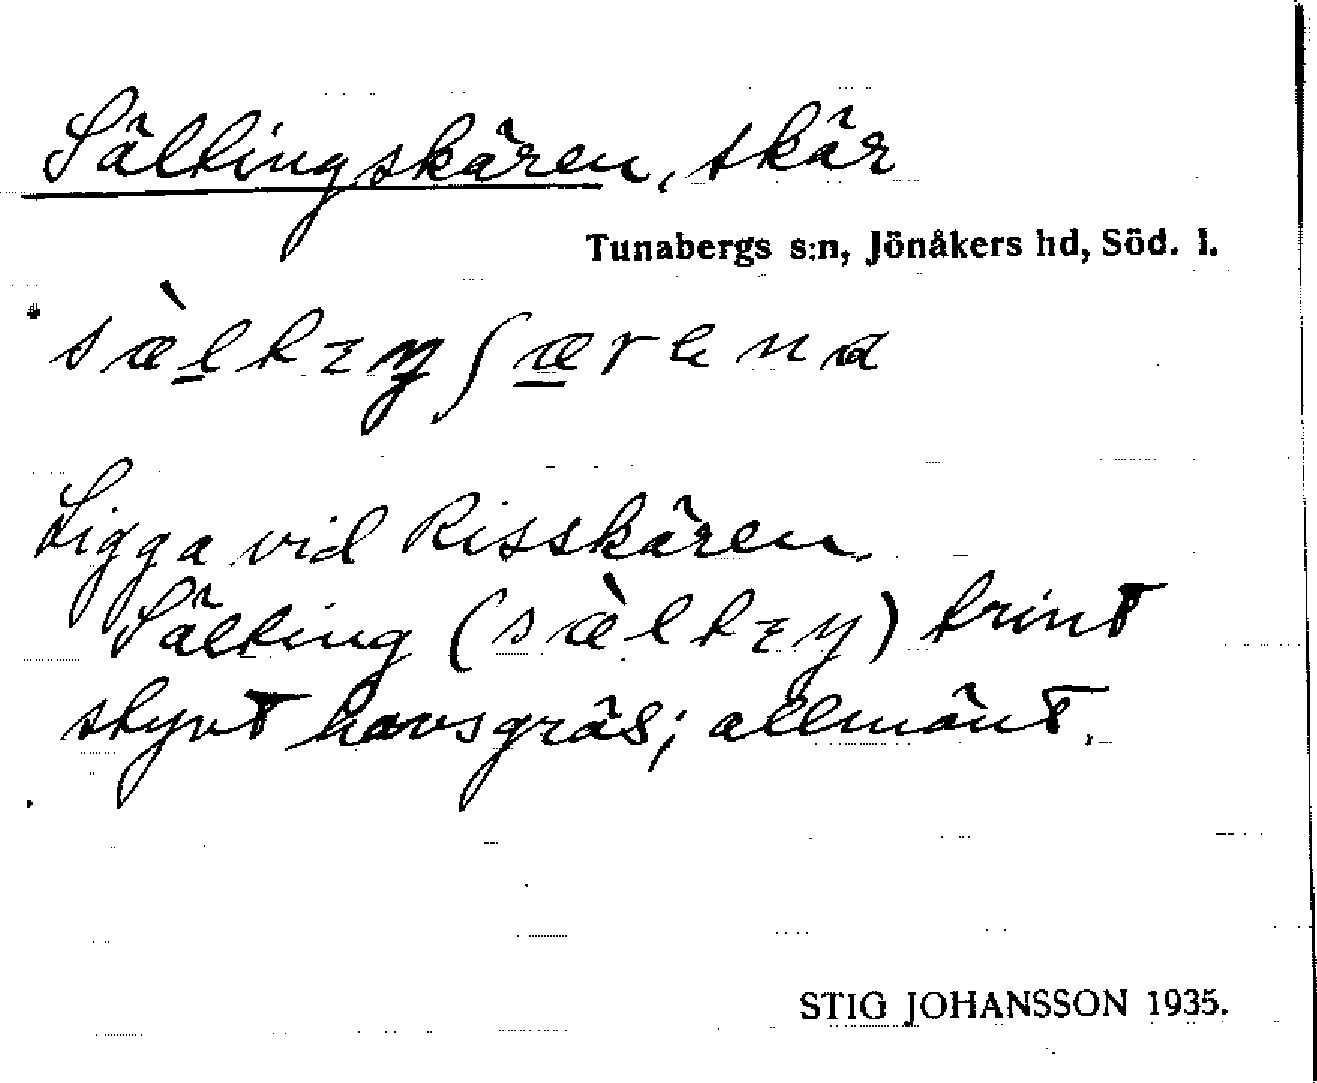 Sältingskären, skär
Tunabergs s:n, Jönåkers hd, Söd. l.
Ligga vid Risskären.
Sälting (sæ̀ltıŋ) trint
styvt havsgräs; allmänt.
STIG JOHANSSON 1935.